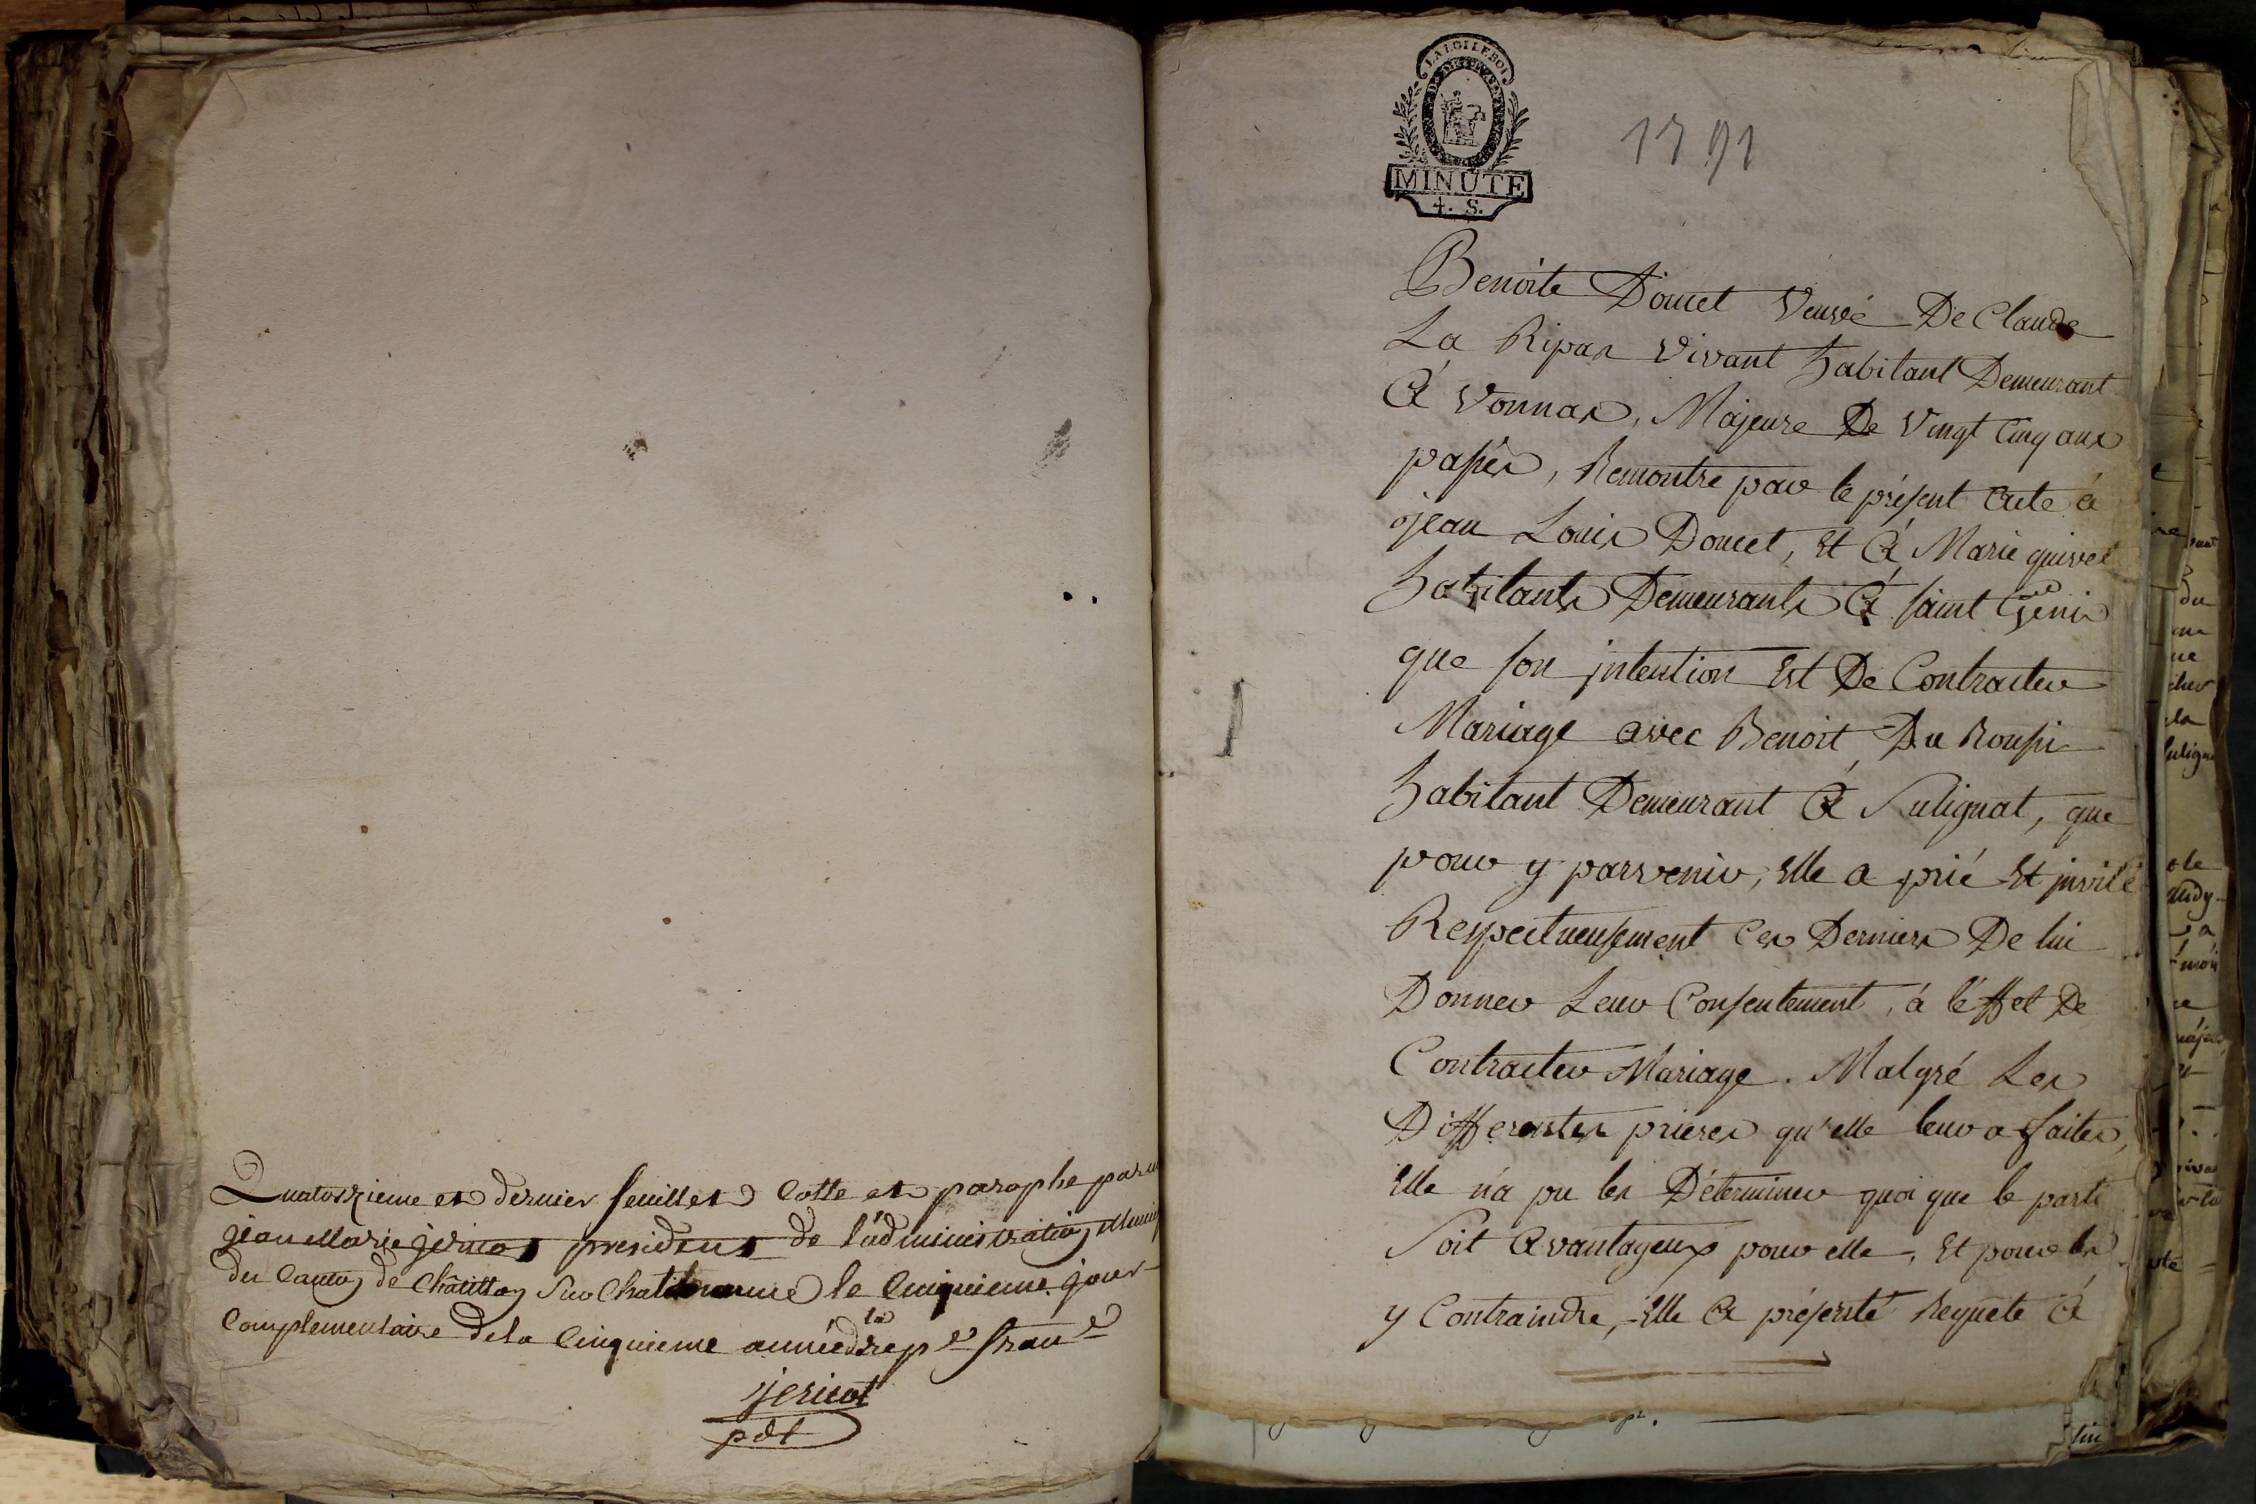 Quatorzieme et dernier feuillet Cotte et paraphe par
jean Marie jericot president de l'administration
du Canton de Châtillon Sur Chalaronne le Cinquieme jour
Complementaire de la Cinquieme année de la rep.e fran.e
jericot
pdt
LA LOI LE ROI
MINUTE
4. S.
1791
Benoite Doucet Veuve De Claude
La Ripas vivant habitant Demeurant
A Vonnas, Majeure De Vingt Cinq ans
passés, Remontre par le présent Acte à
jean Louis Doucet, Et A Marie
habitants Demeurants A saint Genis
que son jntention Est De Contracter
Mariage avec Benoit Du
habitant Demeurant A Sulignat, que
pour y parvenir, Elle a prié Et jnvité
Respectueusement Ces Derniers De lui
Donner Leur Consentement, à l'éffet De
Contracter Mariage. Malgré Les
Differentes prieres qu'elle leur a faites,
Elle n'a pu les Déterminer quoi que le parti
Soit Avantageux pour elle, Et pour les
y Contraindre, Elle A présenté Requête A